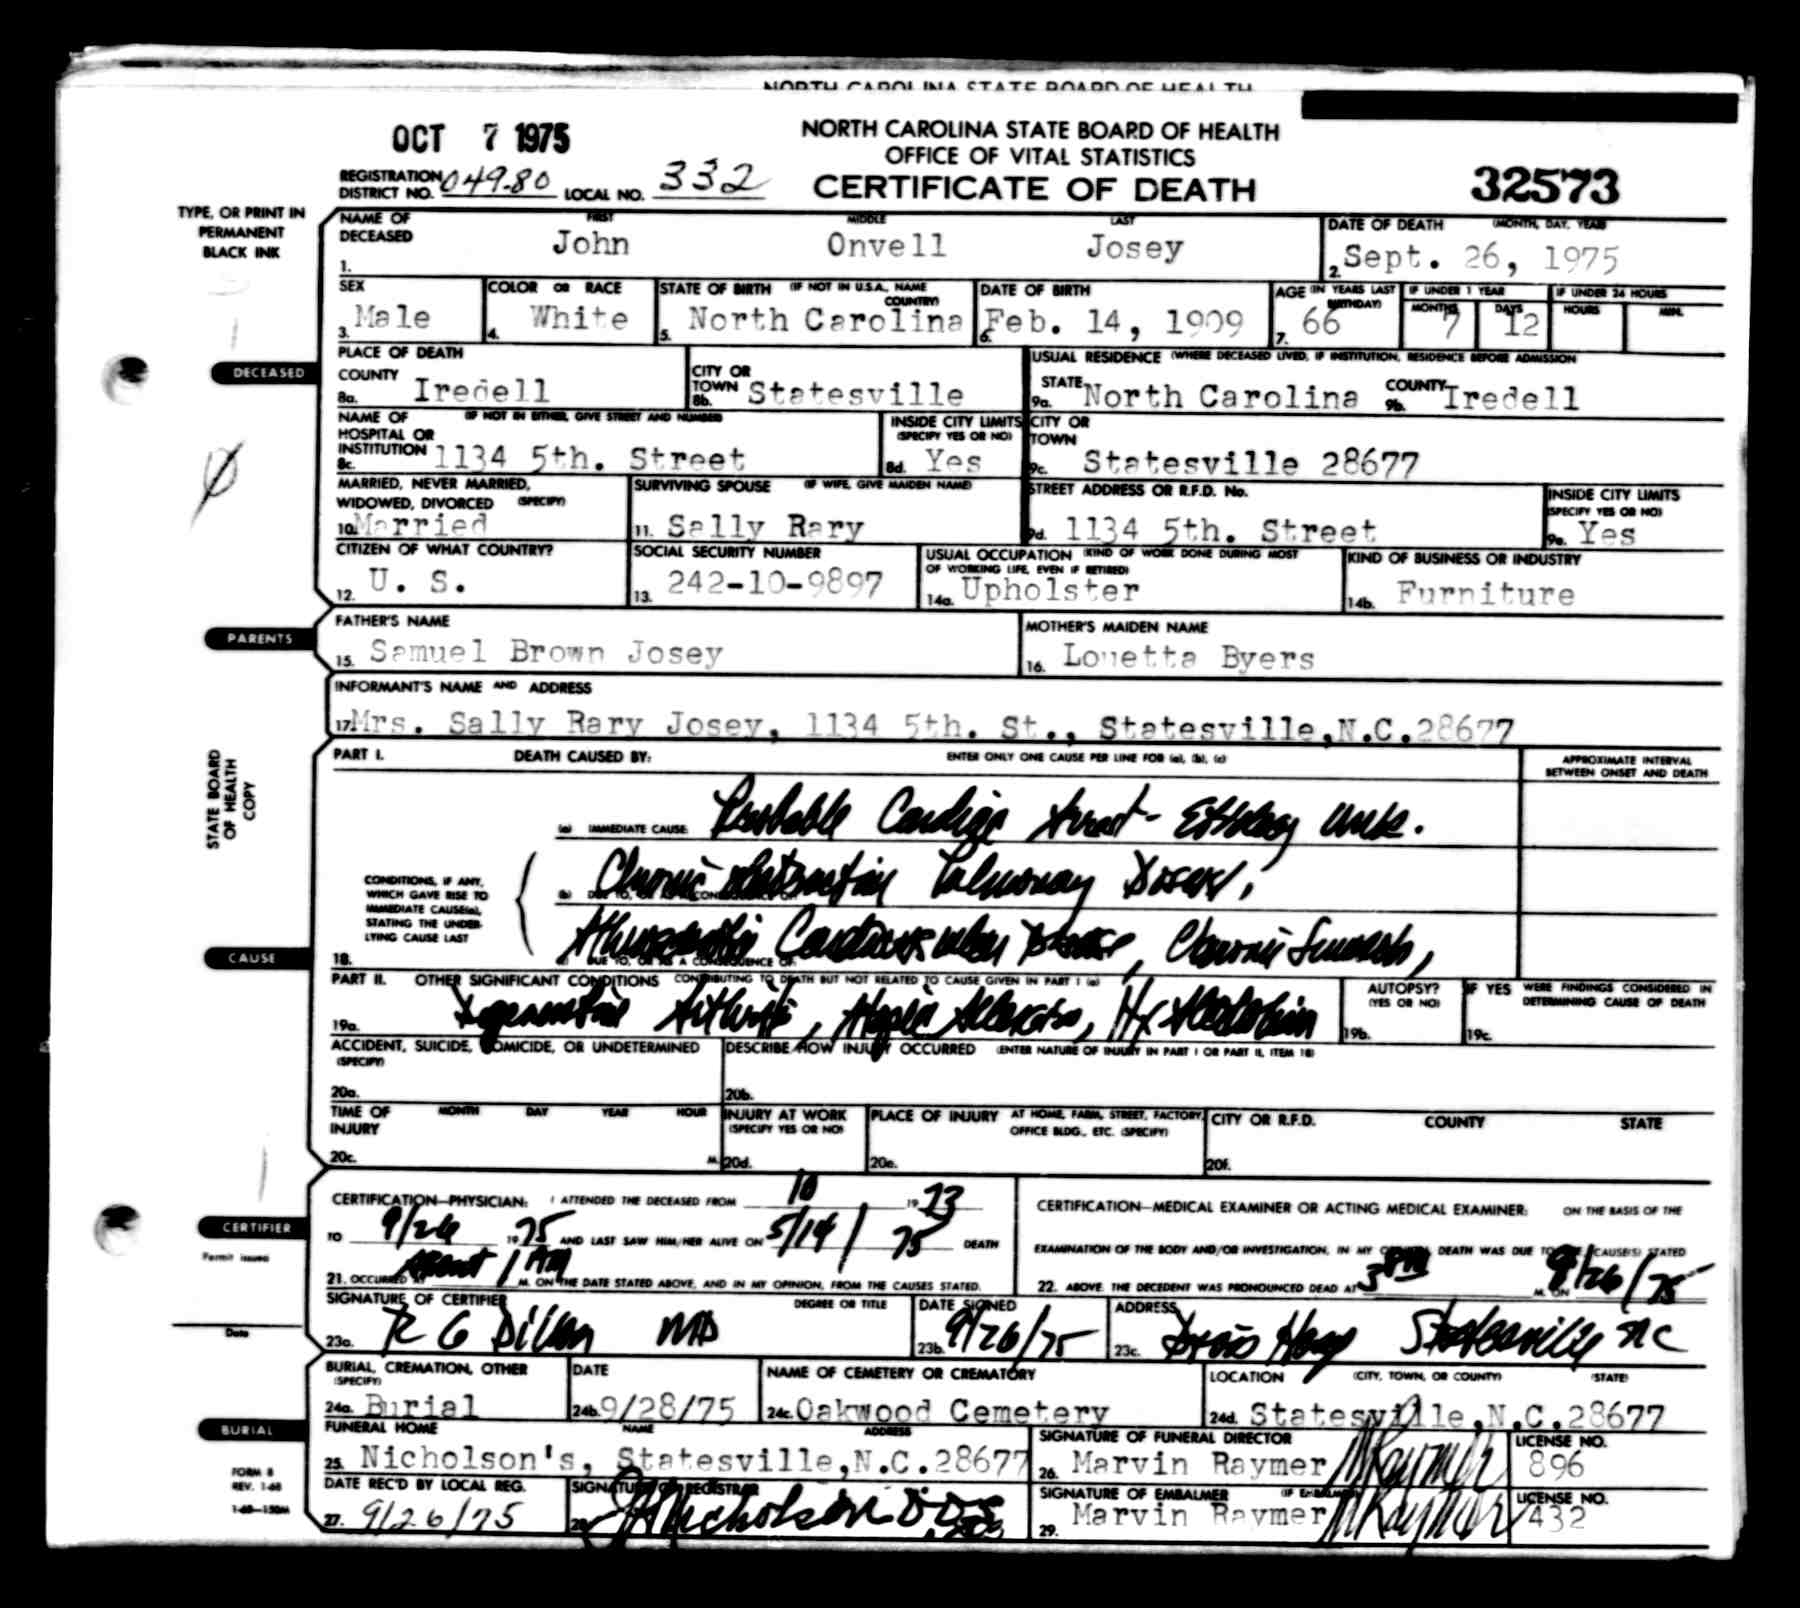 NORTH CAROLINA STATE BOARD OF HEALTH
OCT 7 1975
NORTH CAROLINA STATE BOARD OF HEALTH
OFFICE OF VITAL STATISTICS
REGISTRATION DISTRICT NO. 049-80 LOCAL NO. 332
CERTIFICATE OF DEATH
32573
TYPE, OR PRINT IN
PERMANENT
BLACK INK
NAME OF DECEASED FIRST MIDDLE LAST
1. John Onvell Josey
DATE OF DEATH (MONTH, DAY, YEAR)
2. Sept. 26, 1975
SEX
3. Male
COLOR OR RACE
4. White
STATE OF BIRTH (IF NOT IN U.S.A., NAME COUNTRY)
5. North Carolina
DATE OF BIRTH
6. Feb. 14, 1909
AGE (IN YEARS LAST BIRTHDAY)
7. 66
IF UNDER 1 YEAR
MONTHS 7 DAYS 12
IF UNDER 24 HOURS
HOURS MIN.
DECEASED
PLACE OF DEATH
COUNTY
8a. Iredell
CITY OR TOWN
8b. Statesville
USUAL RESIDENCE (WHERE DECEASED LIVED, IF INSTITUTION, RESIDENCE BEFORE ADMISSION
STATE
9a. North Carolina
COUNTY
9b. Iredell
NAME OF HOSPITAL OR INSTITUTION (IF NOT IN EITHER, GIVE STREET AND NUMBER)
8c. 1134 5th. Street
INSIDE CITY LIMITS
(SPECIFY YES OR NO)
8d. Yes
CITY OR TOWN
9c. Statesville 28677
MARRIED, NEVER MARRIED,
WIDOWED, DIVORCED (SPECIFY)
10. Married
SURVIVING SPOUSE (IF WIFE, GIVE MAIDEN NAME)
11. Sally Rary
STREET ADDRESS OR R.F.D. No.
9d. 1134 5th. Street
INSIDE CITY LIMITS
(SPECIFY YES OR NO)
9e. Yes
CITIZEN OF WHAT COUNTRY?
12. U. S.
SOCIAL SECURITY NUMBER
13. 242-10-9897
USUAL OCCUPATION (KIND OF WORK DONE DURING MOST
OF WORKING LIFE, EVEN IF RETIRED)
14a. Upholster
KIND OF BUSINESS OR INDUSTRY
14b. Furniture
PARENTS
FATHER'S NAME
15. Samuel Brown Josey
MOTHER'S MAIDEN NAME
16. Louetta Byers
INFORMANT'S NAME AND ADDRESS
17. Mrs. Sally Rary Josey, 1134 5th. St., Statesville,N.C.28677
STATE BOARD
OF HEALTH
COPY
PART I. DEATH CAUSED BY: ENTER ONLY ONE CAUSE PER LINE FOR (a), (b), (c)
APPROXIMATE INTERVAL
BETWEEN ONSET AND DEATH
(a) IMMEDIATE CAUSE: Probable Cardiac Arrest - Etiology unk.
CONDITIONS, IF ANY,
WHICH GAVE RISE TO
IMMEDIATE CAUSE(a),
STATING THE UNDER-
LYING CAUSE LAST
(b) DUE TO, OR AS A CONSEQUENCE OF: Chronic obstructive Pulmonary Disease,
CAUSE
18. (c) DUE TO, OR AS A CONSEQUENCE OF: Cardiovascular Disease, Chronic
PART II. OTHER SIGNIFICANT CONDITIONS CONTRIBUTING TO DEATH BUT NOT RELATED TO CAUSE GIVEN IN PART I (a)
19a. Degenerative Arthritis, Hx Alcoholism
AUTOPSY?
(YES OR NO)
19b.
IF YES WERE FINDINGS CONSIDERED IN
DETERMINING CAUSE OF DEATH
19c.
ACCIDENT, SUICIDE, HOMICIDE, OR UNDETERMINED
(SPECIFY)
20a.
DESCRIBE HOW INJURY OCCURRED (ENTER NATURE OF INJURY IN PART I OR PART II, ITEM 18)
20b.
TIME OF INJURY MONTH DAY YEAR HOUR
20c. M.
INJURY AT WORK
(SPECIFY YES OR NO)
20d.
PLACE OF INJURY AT HOME, FARM, STREET, FACTORY,
OFFICE BLDG., ETC. (SPECIFY)
20e.
CITY OR R.F.D. COUNTY STATE
20f.
CERTIFIER
Permit issued
Date
CERTIFICATION—PHYSICIAN: I ATTENDED THE DECEASED FROM 10 19 73
TO 9/26 19 75 AND LAST SAW HIM/HER ALIVE ON 5/14/75 DEATH
21. OCCURRED AT About 1 AM M. ON THE DATE STATED ABOVE, AND IN MY OPINION, FROM THE CAUSES STATED.
CERTIFICATION—MEDICAL EXAMINER OR ACTING MEDICAL EXAMINER: ON THE BASIS OF THE
EXAMINATION OF THE BODY AND/OR INVESTIGATION, IN MY OPINION, DEATH WAS DUE TO THE CAUSE(S) STATED
22. ABOVE. THE DECEDENT WAS PRONOUNCED DEAD AT 3 PM M. ON 9/26/75
SIGNATURE OF CERTIFIER DEGREE OR TITLE
23a. R G Dillon MD
DATE SIGNED
23b. 9/26/75
ADDRESS
23c. Davis Hosp Statesville NC
BURIAL, CREMATION, OTHER
(SPECIFY)
24a. Burial
DATE
24b. 9/28/75
NAME OF CEMETERY OR CREMATORY
24c. Oakwood Cemetery
LOCATION (CITY, TOWN, OR COUNTY) (STATE)
24d. Statesville,N.C.28677
BURIAL
FUNERAL HOME NAME ADDRESS
25. Nicholson's, Statesville,N.C.28677
SIGNATURE OF FUNERAL DIRECTOR
26. Marvin Raymer M Raymer
LICENSE NO.
896
FORM 8
REV. 1-68
1-68—150M
DATE REC'D BY LOCAL REG.
27. 9/26/75
SIGNATURE OF REGISTRAR
28. Nicholson D.D.S.
SIGNATURE OF EMBALMER (IF EMBALMED)
29. Marvin Raymer M Raymer
LICENSE NO.
432